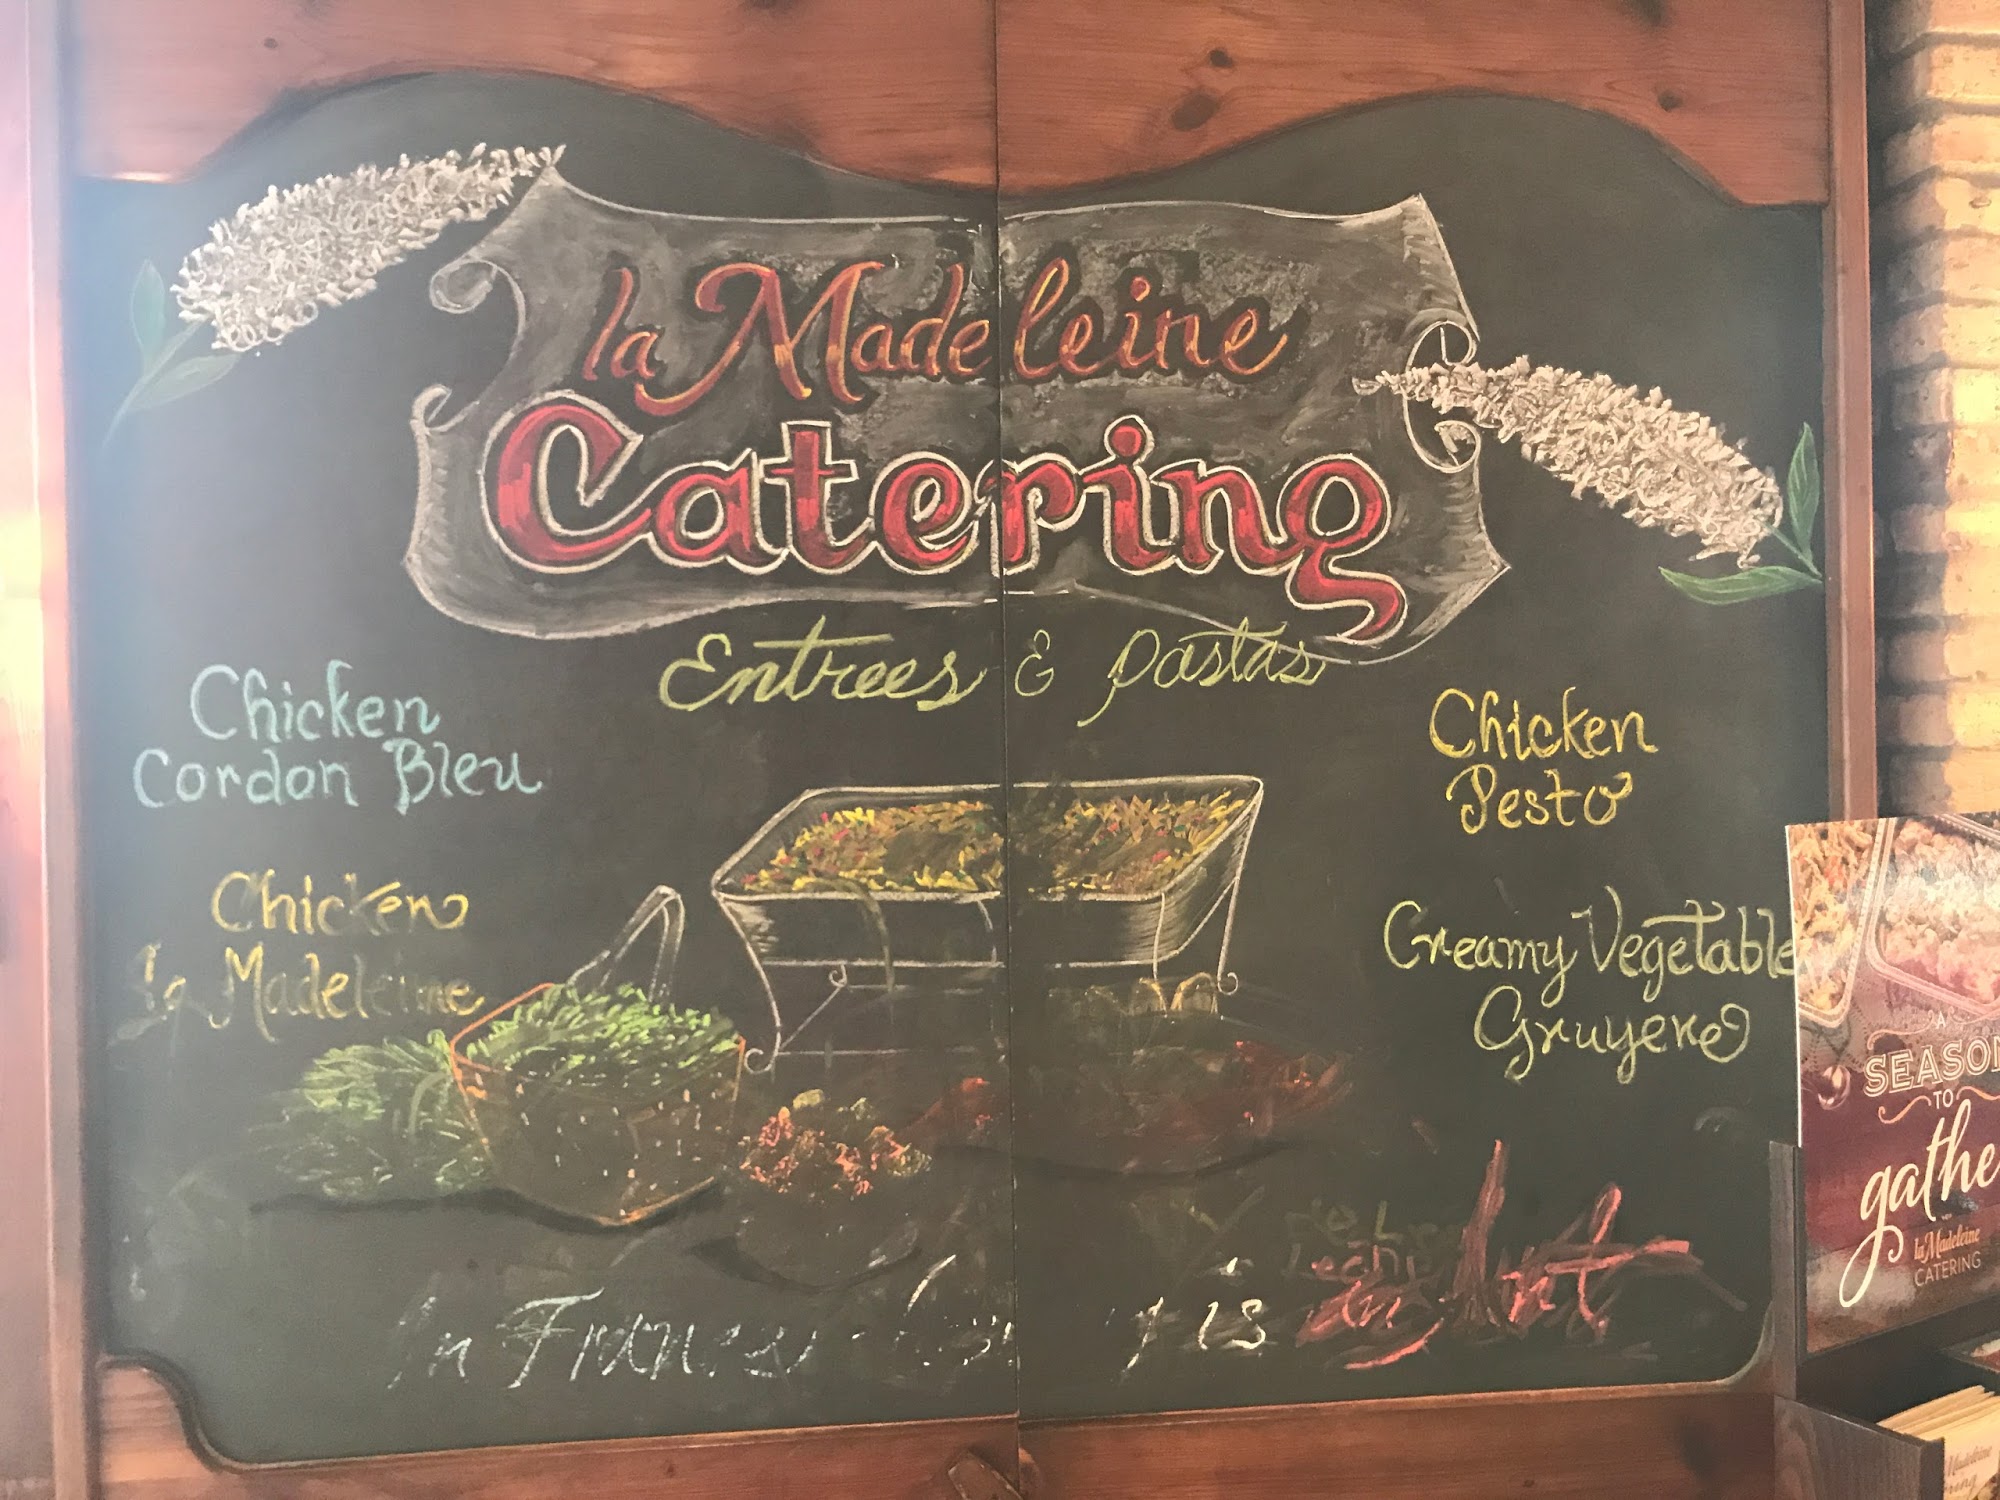 la Madeleine
Catering
Entrees & pastas
Chicken
Cordon Bleu
Chicken
la Madeleine
Chicken
Pesto
Creamy Vegetable
Gruyere
In France
is
an Art
A
SEASON
TO
gathe
la Madeleine
CATERING
Madeleine